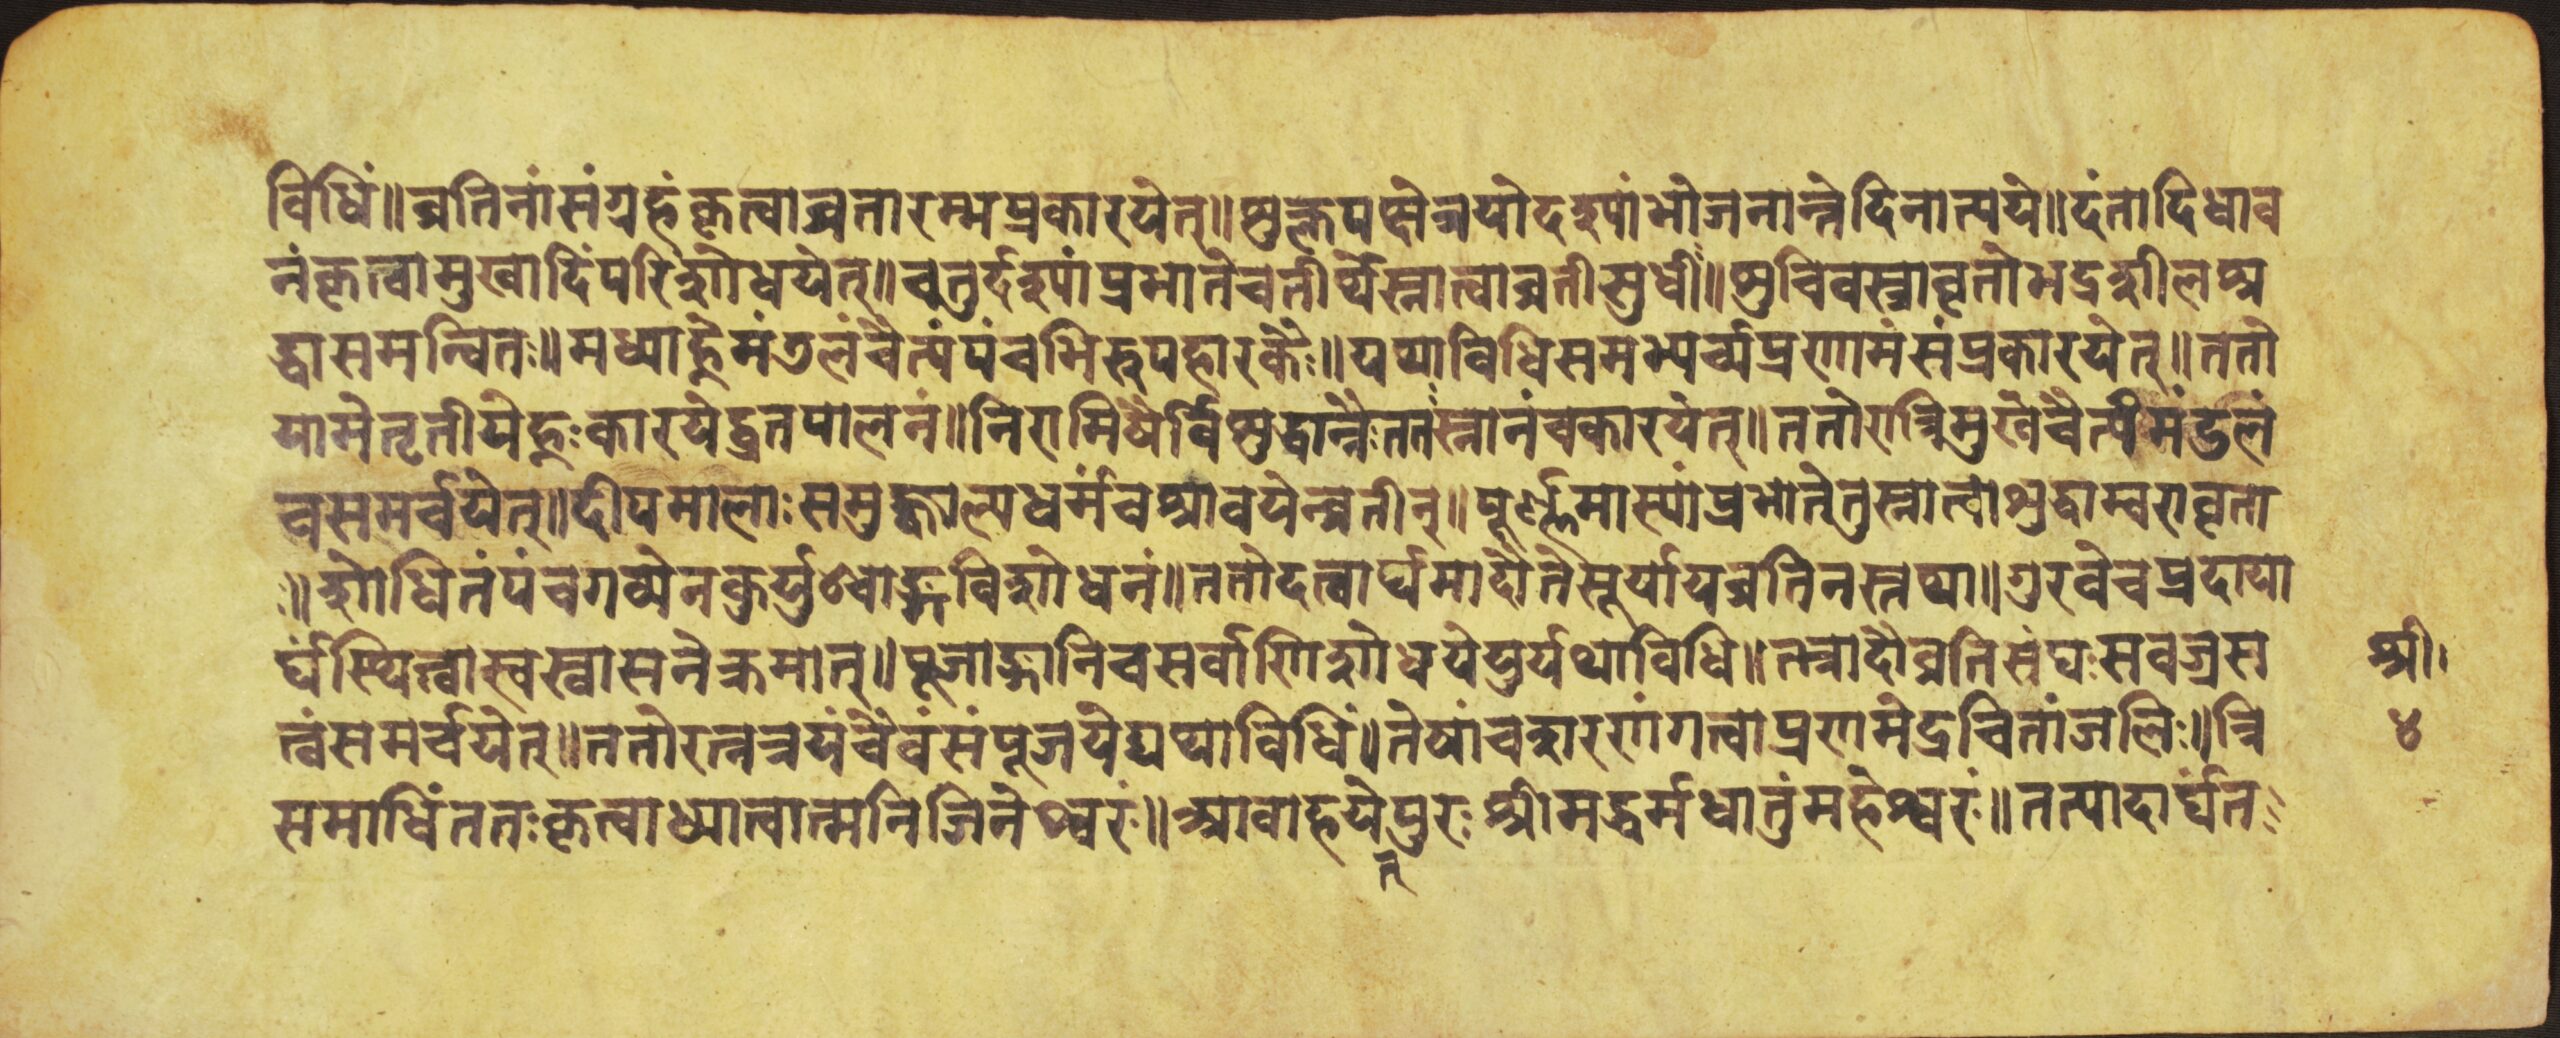 विधिं॥व्रतिनांसंग्रहंकृत्वाव्रतारम्भप्रकारयेत्॥शुक्लपक्षेत्रयोदश्यांभोजनान्तेदिनात्यये॥दंतादिधाव
नंकृत्वामुखादिंपरिशोधयेत्॥चतुर्दश्यांप्रभातेचतीर्थेस्नात्वाव्रतीसुधीः॥शुचिवस्त्रावृतोभद्रशीलश्र
द्धासमन्वितः॥मध्याह्नेमंडलंचैत्यंपंचभिरुपहारकैः॥यथाविधिसमभ्यर्च्यप्रणामंसंप्रकारयेत्॥ततो
यामेतृतीयेह्नःकारयेद्व्रतपालनं॥निरामिषैर्विशुद्धान्नैःततःस्नानंचकारयेत्॥ततोरात्रिमुखेचैत्यंमंडलं
चसमर्चयेत्॥दीपमालाःसमुज्ज्वाल्यधर्मंचश्रावयेन्व्रतीन्॥पूर्ण्णमास्यांप्रभातेतुस्नात्वाशुद्धाम्बरावृता
ः॥शोधितंपंचगव्येनकुर्युश्चाङ्गविशोधनं॥ततोदत्वार्घमादौतेसूर्यायव्रतिनस्तथा॥गुरवेचप्रदाया
र्घंस्थित्वास्वस्वासनेक्रमात्॥पूजाङ्गानिचसर्वाणिशोधयेयुर्यथाविधि॥तत्रादौव्रतिसंघःसवज्रस
त्वंसमर्चयेत्॥ततोरत्नत्रयंचैवंसंपूजयेद्यथाविधिं॥तेषांचशरणंगत्वाप्रणमेद्रचितांजलिः॥त्रि
समाधिंततःकृत्वाध्यात्वात्मनिजिनेश्वरं॥आवाहयेत्पुरःश्रीमद्धर्मधातुंमहेश्वरं॥तत्पादार्घंत
श्री।
४